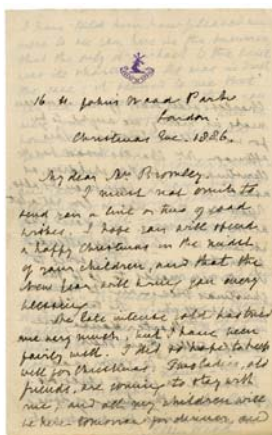 16 St. John's Wood Park
London.
Christmas Eve. 1886.
My dear Mrs Bromley.
I must not omit to
send you a line or two of good
wishes. I hope you will spend
a happy Christmas in the midst
of your children, and that the
New Year will bring you every
blessing.
The late intense cold has tried
me very much, but I have been
fairly well. I did so hope to keep
well for Christmas. Two ladies, old
friends, are coming to stay with
me, and all my children will
be here tomorrow for dinner, and